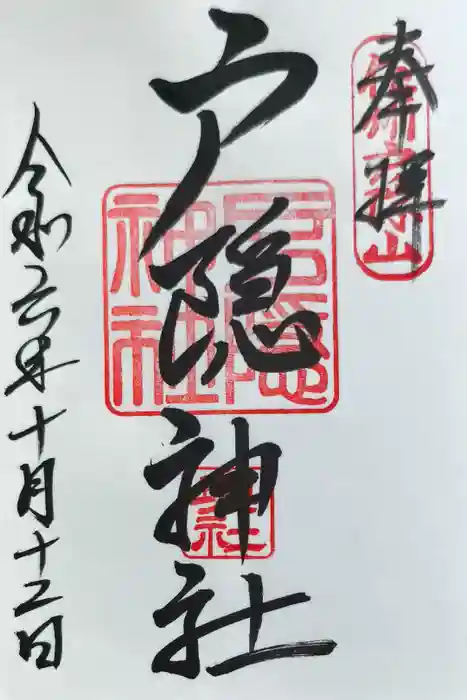 奉拝
戸隠神社
戸隠
神社
令和六年十月十二日